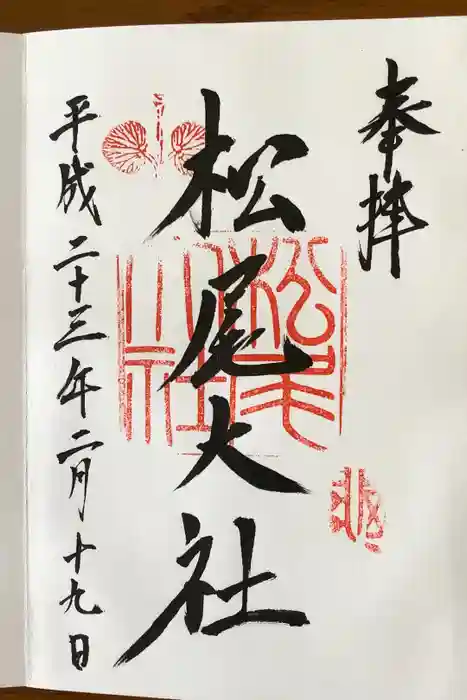 奉拝
松尾大社
平成二十三年二月十九日
松尾大社